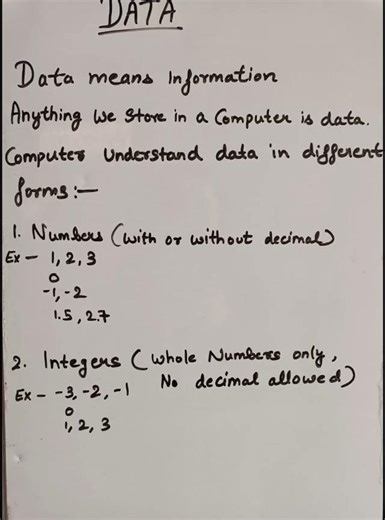 DATA
Data means Information
Anything we store in a Computer is data.
Computer Understand data in different
forms:—
1. Numbers (with or without decimal)
Ex — 1, 2, 3
0
-1, -2
1.5, 2.7
2. Integers (Whole Numbers only,
No decimal allowed)
Ex — -3, -2, -1
0
1, 2, 3